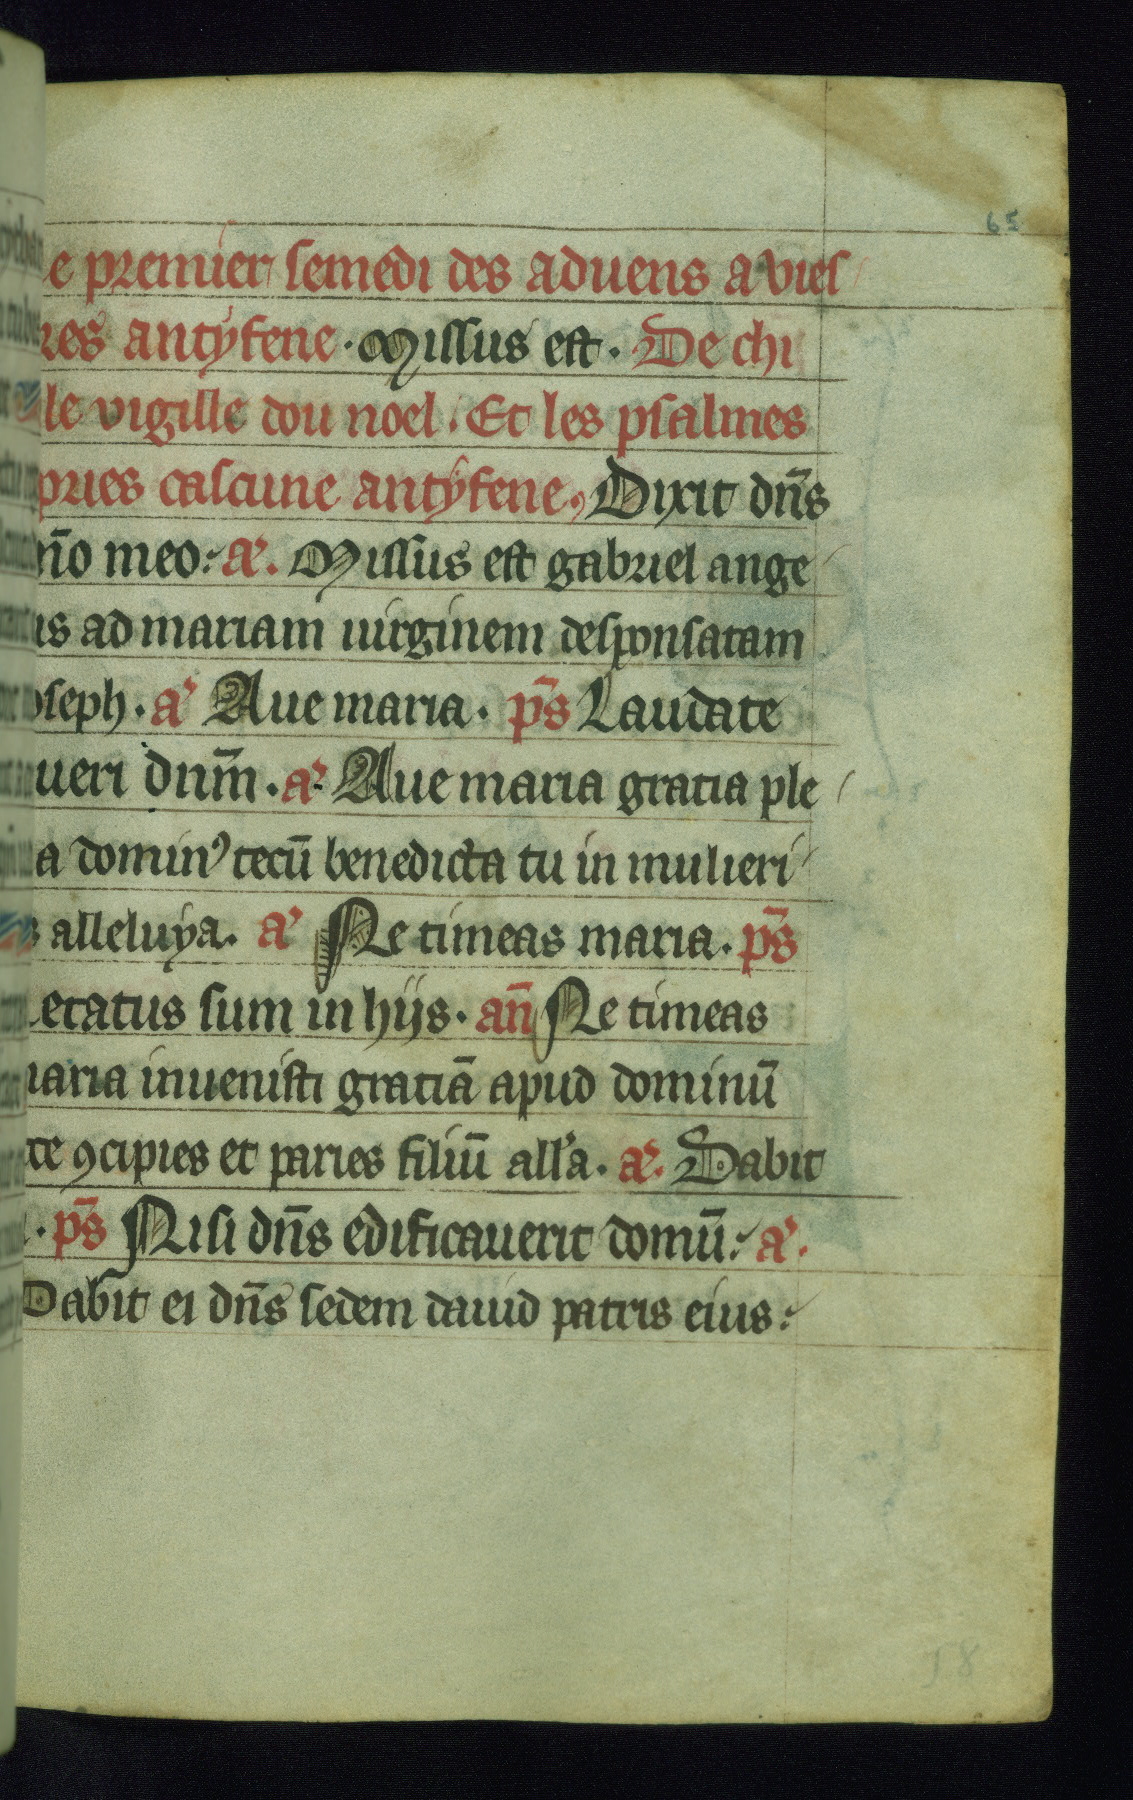 65
e premier semedi des aduens a vies
res antyfene. Missus est. De chi
le vigille dou noel. Et les psalmes
pries cascune antyfene. Dixit dn̄s
n̄o meo: aͬ. Missus est gabriel ange
us ad mariam uirginem desponsatam
oseph. aͬ Aue maria. ps̄ Laudate
ueri dnm̄. aͬ. Aue maria gracia ple
a dominꝰ tecū benedicta tu in mulieri
s alleluya. aͬ Ne timeas maria. ps̄
etatus sum in hijs. an̄ Ne timeas
maria inuenisti graciā apud dominū
ce ꝯcipies et paries filiū all'a. aͬ. Dabit
. ps̄ Nisi dn̄s edificauerit domū: aͬ.
Dabit ei dn̄s sedem dauid patris eius: